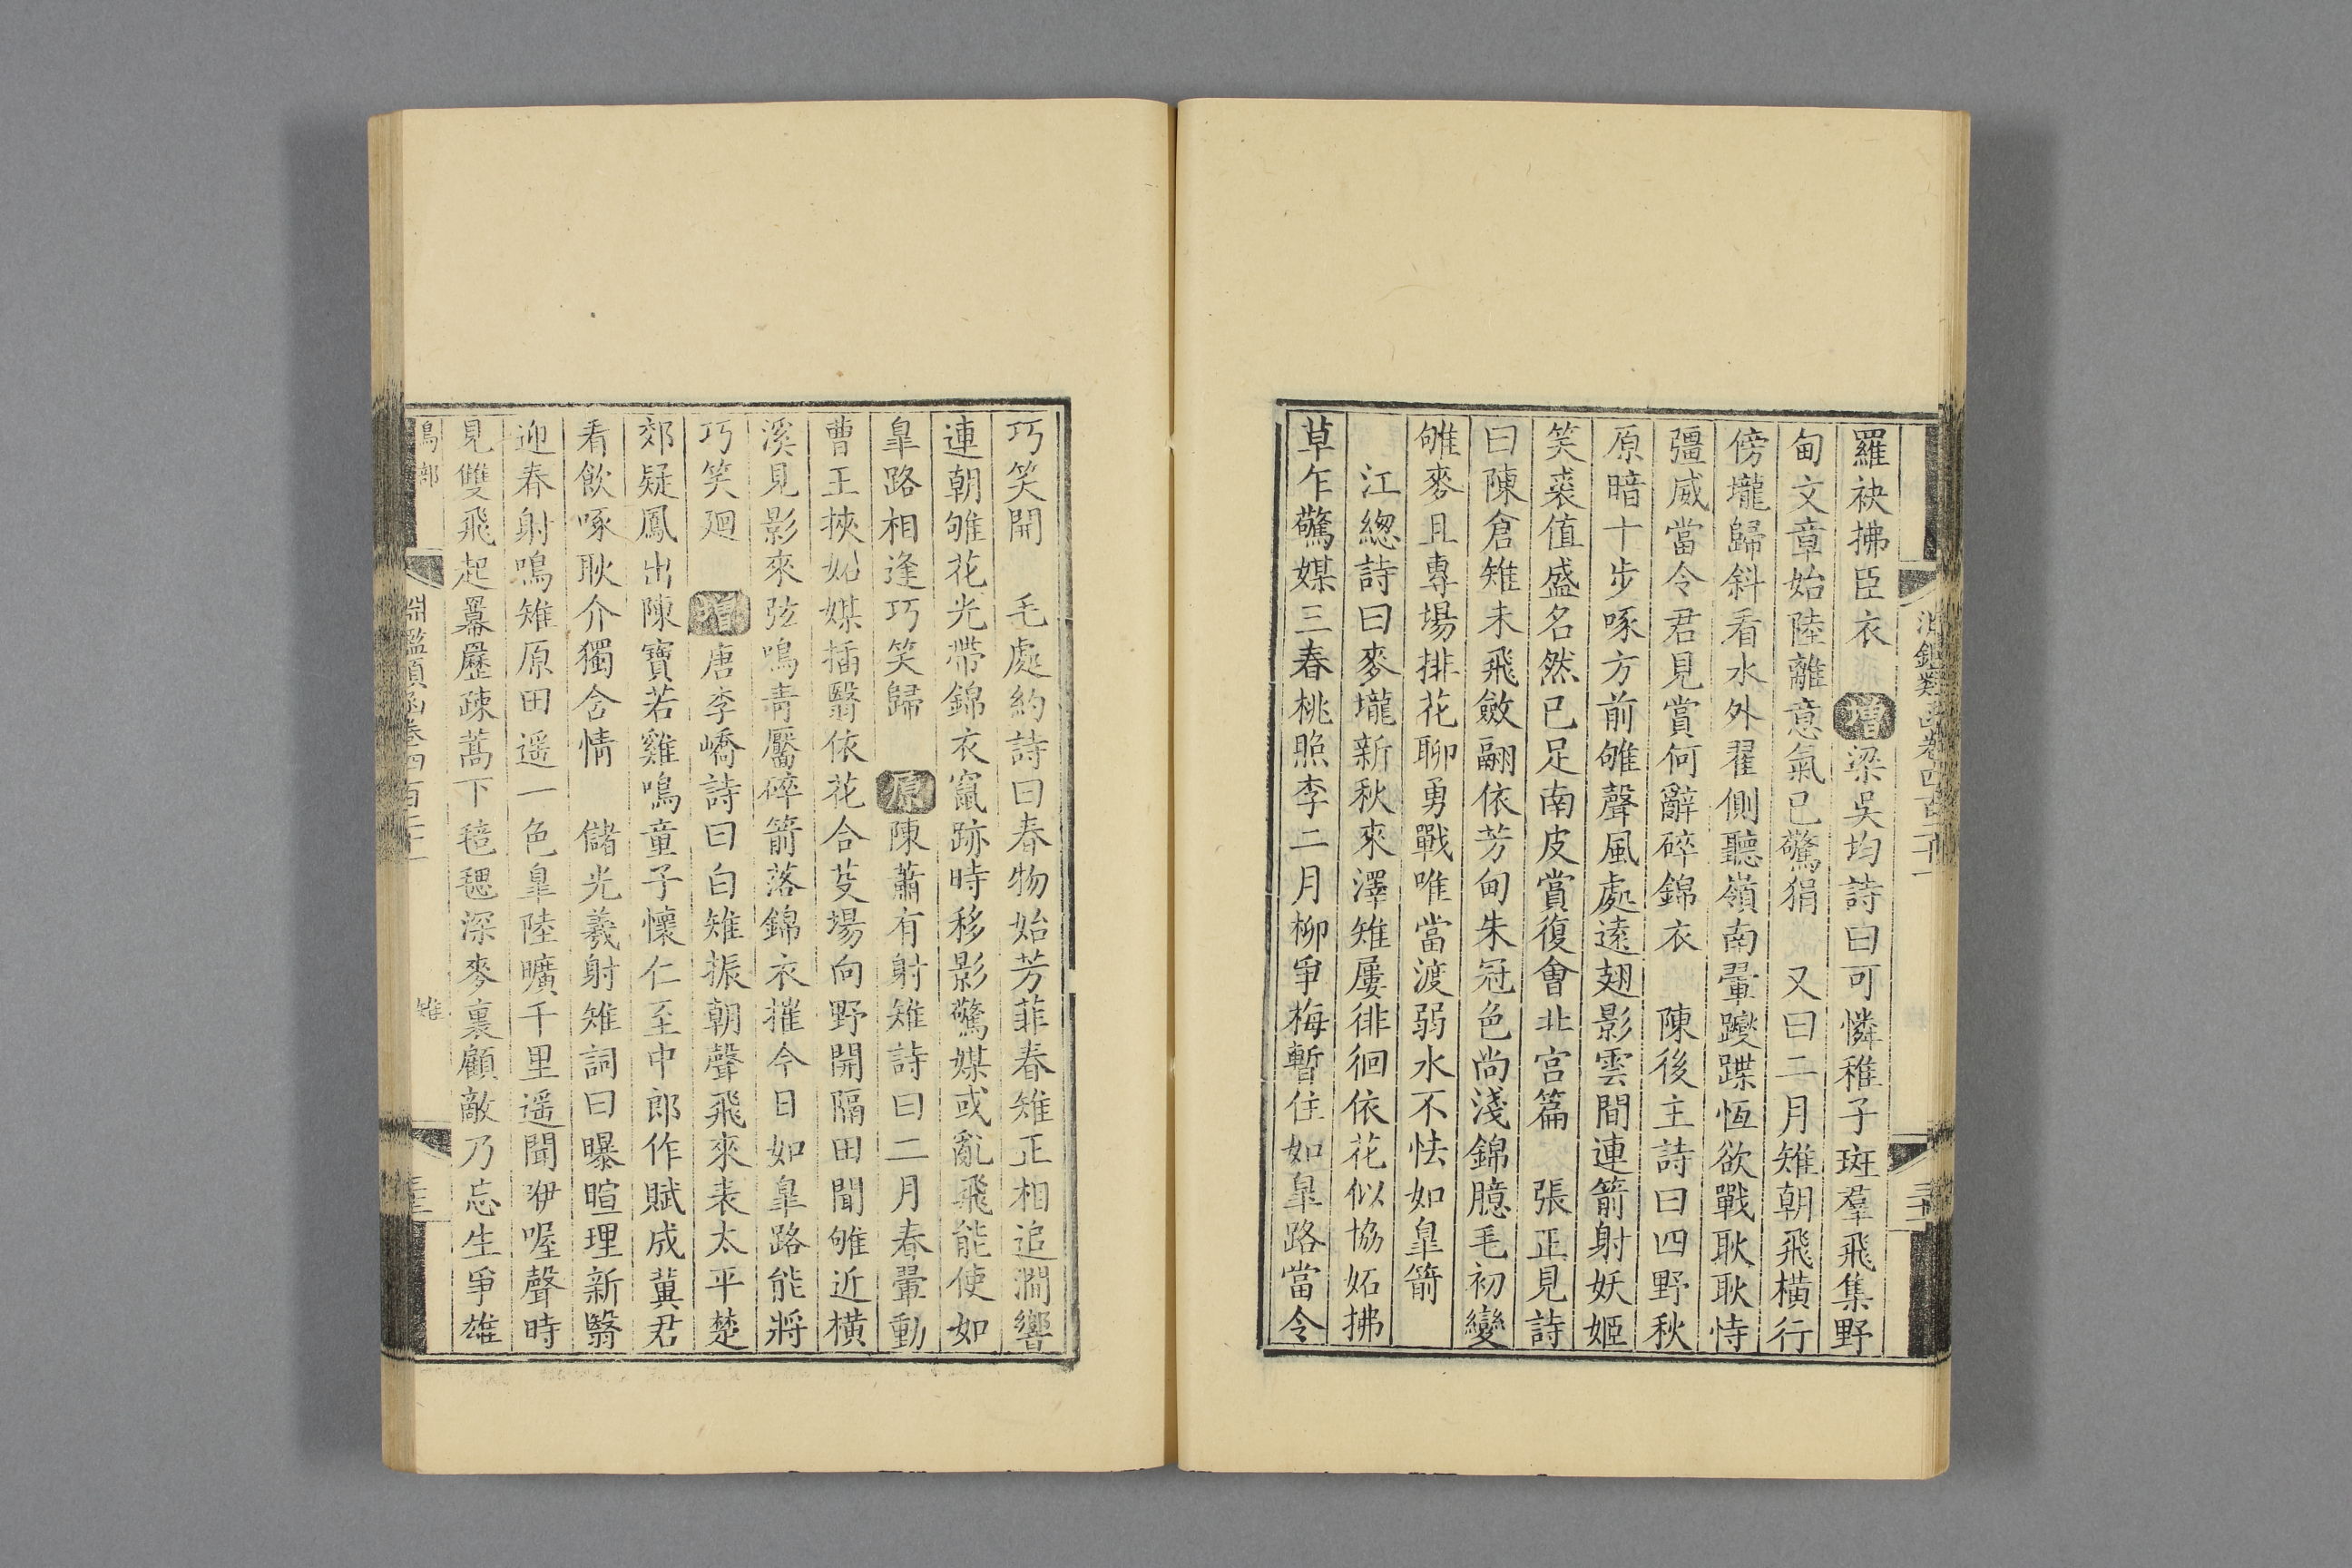 羅袂拂臣衣　增梁吳均詩曰可憐稚子斑羣飛集野
甸文章始陸離意氣已驚狷　又曰二月雉朝飛橫行
傍壠歸斜看水外翟側聽嶺南翬躞蹀恆欲戰耿耿恃
彊威當令君見賞何辭碎錦衣　陳後主詩曰四野秋
原暗十步啄方前雊聲風處遠翅影雲間連箭射妖姬
笑裘值盛名然已足南皮賞復會北宮篇　張正見詩
曰陳倉雉未飛斂翮依芳甸朱冠色尚淺錦臆毛初變
雊麥且專場排花聊勇戰唯當渡弱水不怯如臯箭
江總詩曰麥壠新秋來澤雉屢徘徊依花似協妬拂
草乍驚媒三春桃照李二月柳爭梅暫住如臯路當令
巧笑開　毛處約詩曰春物始芳菲春雉正相追澗響
連朝雊花光帶錦衣竄跡時移影驚媒或亂飛能使如
臯路相逢巧笑歸　原陳蕭有射雉詩曰二月春翬動
曹王挾妬媒插翳依花合芟場向野開隔田聞雊近橫
溪見影來弦鳴青靨碎箭落錦衣摧今日如臯路能將
巧笑廻　增唐李嶠詩曰白雉振朝聲飛來表太平楚
郊疑鳳出陳寶若雞鳴童子懷仁至中郎作賦成冀君
看飲啄耿介獨含情　儲光羲射雉詞曰曝暄理新翳
迎春射鳴雉原田遥一色臯陸曠千里遥聞咿喔聲時
見雙飛起羃䍥疎蒿下毰毸深麥裏顧敵乃忘生爭雄
鳥部　淵鑑類函卷四百二十一　雉